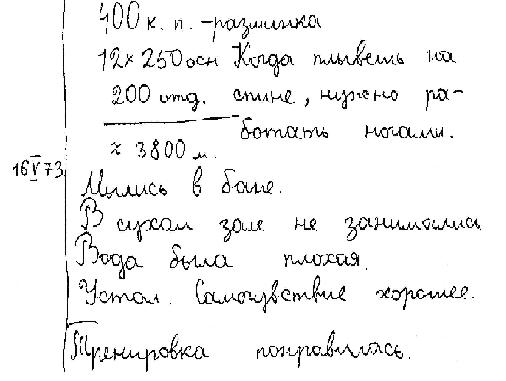 400 к. п. - разминка
12 × 250 осн Когда плывешь на
200 отд. спине, нужно ра-
ботать ногами.
≈ 3800 м.
16 V 73
Мылись в бане.
В сухом зале не занимались
Вода была плохая.
Устал. Самочувствие хорошее.
Тренировка понравилась.